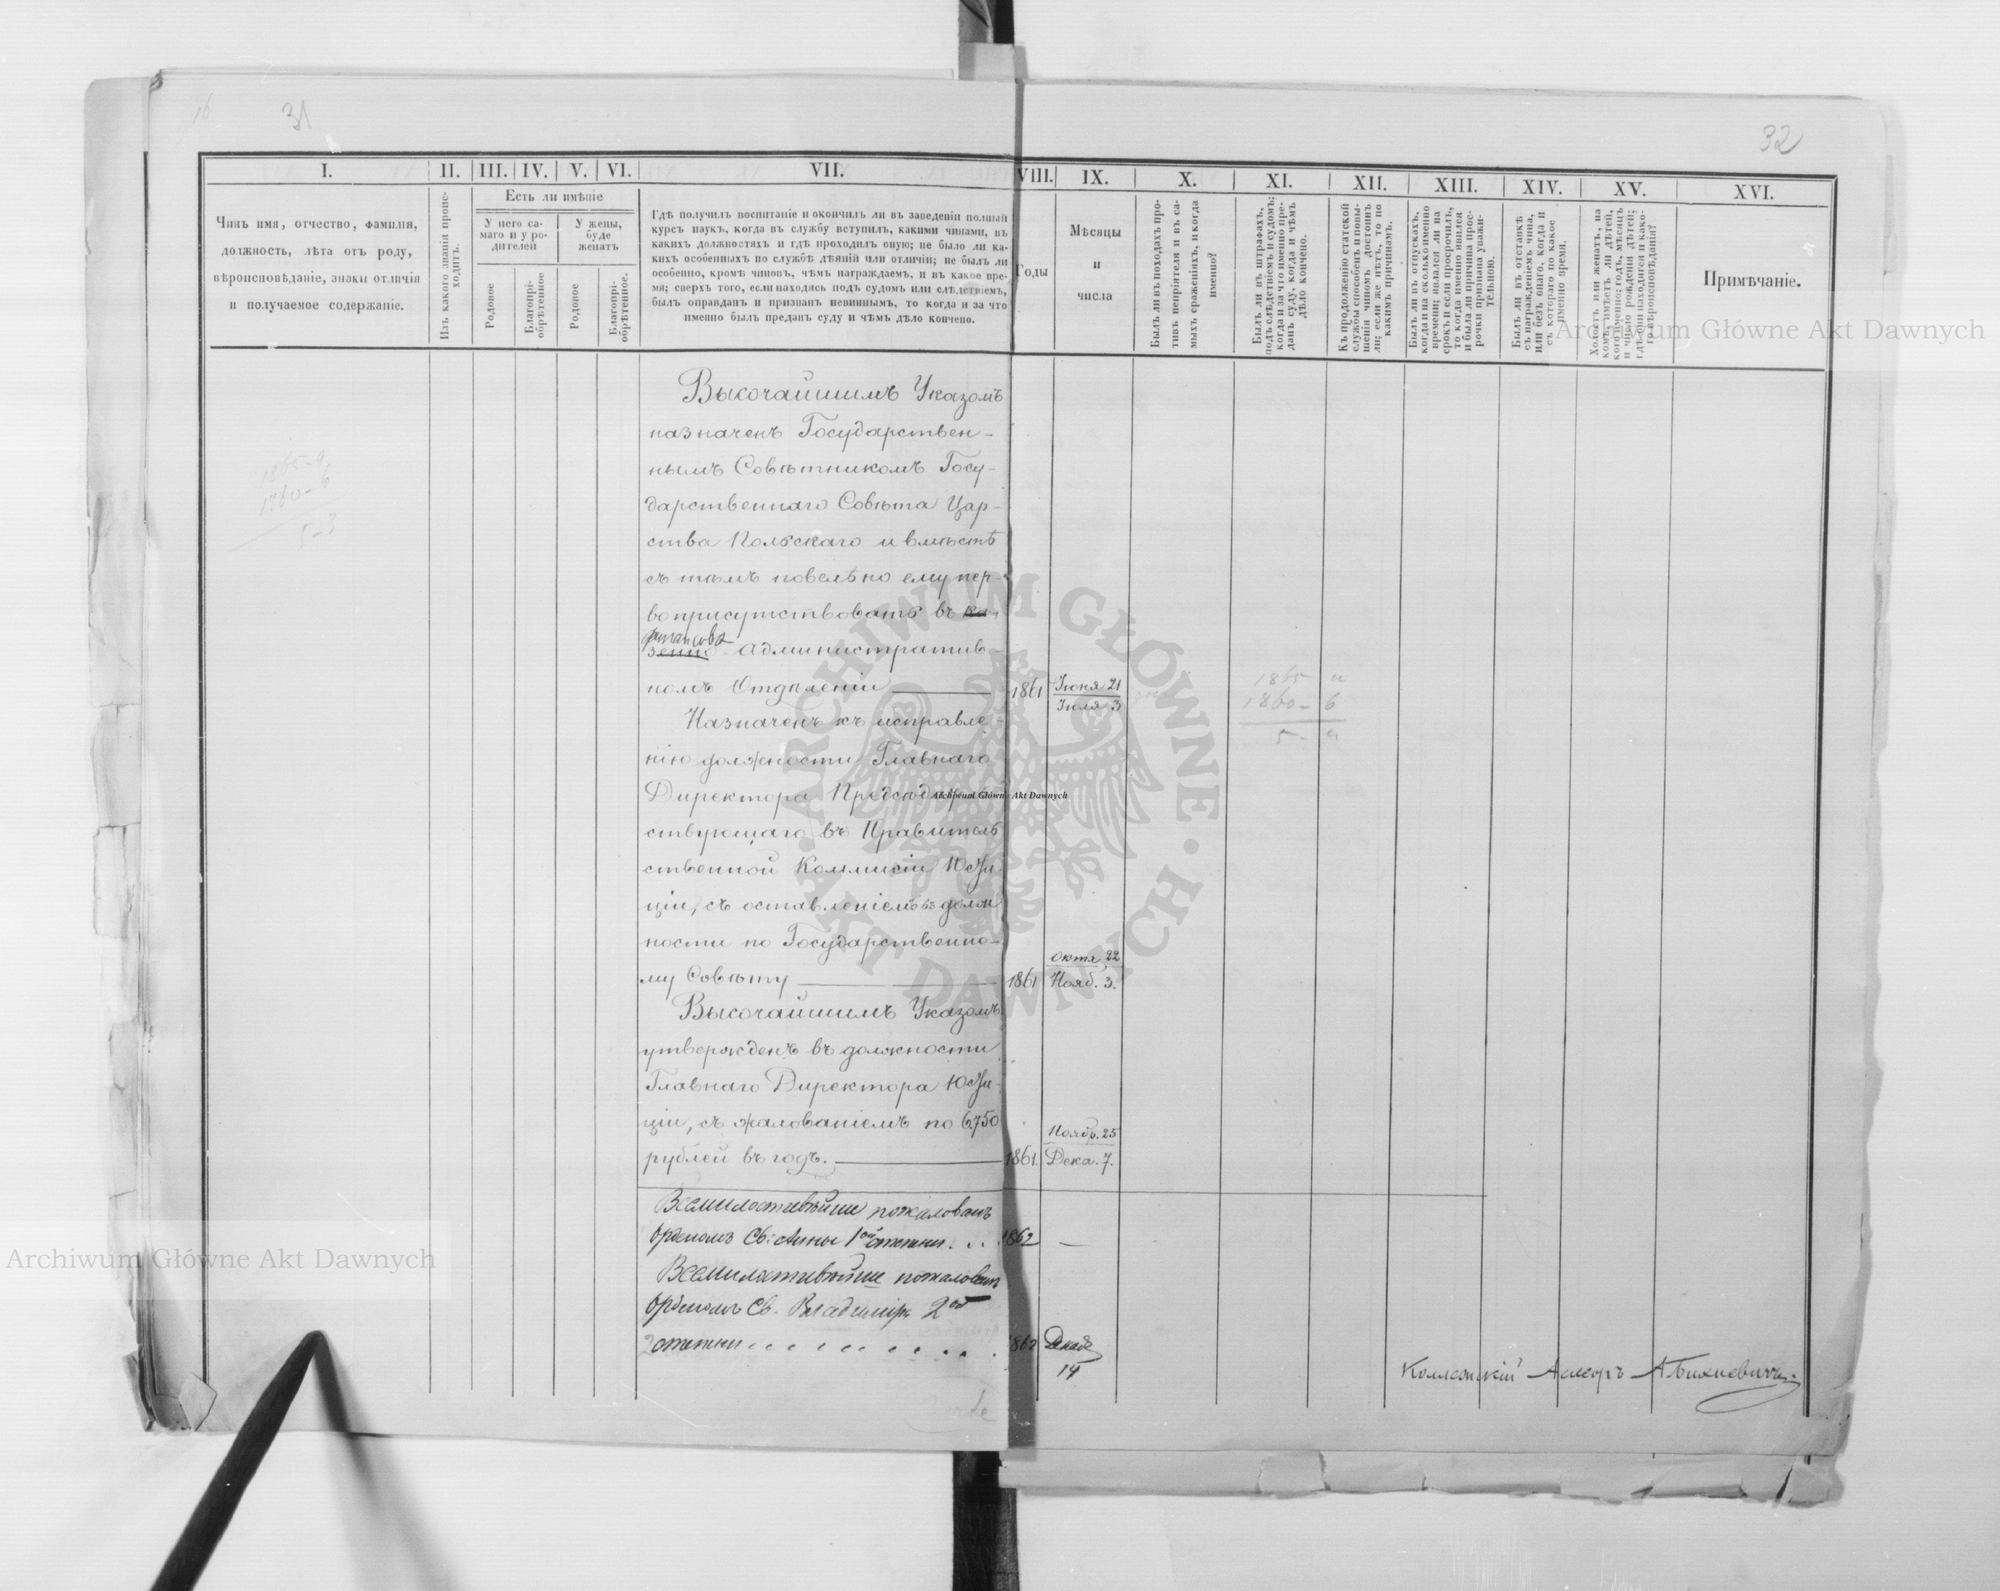 31
32
I.
II.
III.
IV.
V.
VI.
VII.
VIII.
IX.
X.
XI.
XII.
XIII.
XIV.
XV.
XVI.
Чинъ имя, отчество, фамилія,
должность, лѣта отъ роду,
вѣроисповѣданіе, знаки отличія
и получаемое содержаніе.
Изъ какого званія проис-
ходитъ.
Есть ли имѣніе
У него са-
маго и у ро-
дителей
У жены,
буде
женатъ
Родовое
Благопрі-
обрѣтенное
Родовое
Благопрі-
обрѣтенное.
Гдѣ получилъ воспитаніе и окончилъ ли въ заведеніи полный
курсъ наукъ, когда въ службу вступилъ, какими чинами, въ
какихъ должностяхъ и гдѣ проходилъ оную; не было ли ка-
кихъ особенныхъ по службѣ дѣяній или отличій; не былъ ли
особенно, кромѣ чиновъ, чѣмъ награждаемъ, и въ какое вре-
мя; сверхъ того, если находясь подъ судомъ или слѣдствіемъ,
былъ оправданъ и признанъ невиннымъ, то когда и за что
именно былъ преданъ суду и чѣмъ дѣло кончено.
Годы
Мѣсяцы
и
числа
Былъ ли въ походахъ про-
тивъ непріятеля и въ са-
мыхъ сраженіяхъ, и когда
именно?
Былъ ли въ штрафахъ,
подъ слѣдствіемъ и судомъ;
когда и за что именно пре-
данъ суду, когда и чѣмъ
дѣло кончено.
Къ продолженію статской
службы способенъ и повы-
шенія чиномъ достоинъ
ли; если же нѣтъ, то по
какимъ причинамъ.
Былъ ли въ отпускахъ,
когда и на сколько именно
времени; явился ли на
срокъ и если просрочилъ,
то когда именно явился
и была ли причина прос-
рочки признана уважи-
тельною.
Былъ ли въ отставкѣ
съ награжденіемъ чина,
или безъ онаго, когда и
съ котораго по какое
именно время.
Холостъ или женатъ, на
комъ, имѣетъ ли дѣтей,
кого именно; годъ, мѣсяцъ
и число рожденія дѣтей;
гдѣ они находятся и како-
го вѣроисповѣданія?
Примѣчаніе.
Высочайшимъ Указомъ
назначенъ Государствен-
нымъ Совѣтникомъ Госу-
дарственнаго Совѣта Цар-
ства Польскаго и вмѣстѣ
съ тѣмъ повелѣно ему пер-
воприсутствовать въ
финансово
Административ-
номъ Отдѣленіи 1861 Іюня 21
Іюля 3
Назначенъ къ исправле-
нію должности Главнаго
Директора Предсѣдатель-
ствующаго въ Правитель
ственной Коммисіи Юсти-
ціи, съ оставленіемъ въ долж
ности по Государственно-
му Совѣту 1861 Октя. 22
Нояб. 3.
Высочайшимъ Указомъ
утвержденъ въ должности
Главнаго Директора Юсти-
ціи, съ жалованіемъ по 6750
рублей въ годъ. 1861. Ноябр. 25
Дека. 7.
Всемилостивѣйше пожалованъ
Орденомъ Св: Анны 1ой степени. . . 1862 —
Всемилостивѣйше пожалованъ
Орденомъ Св. Владиміра 2ой
степени 1862 Декаб
14
1865
1860 - 6
5 - 3
1865
1860 - 6
5 -
Коллежскій Асесоръ
Archiwum Główne Akt Dawnych
Archiwum Główne Akt Dawnych
Archiwum Główne Akt Dawnych
ARCHIWUM GŁÓWNE · AKT DAWNYCH ·